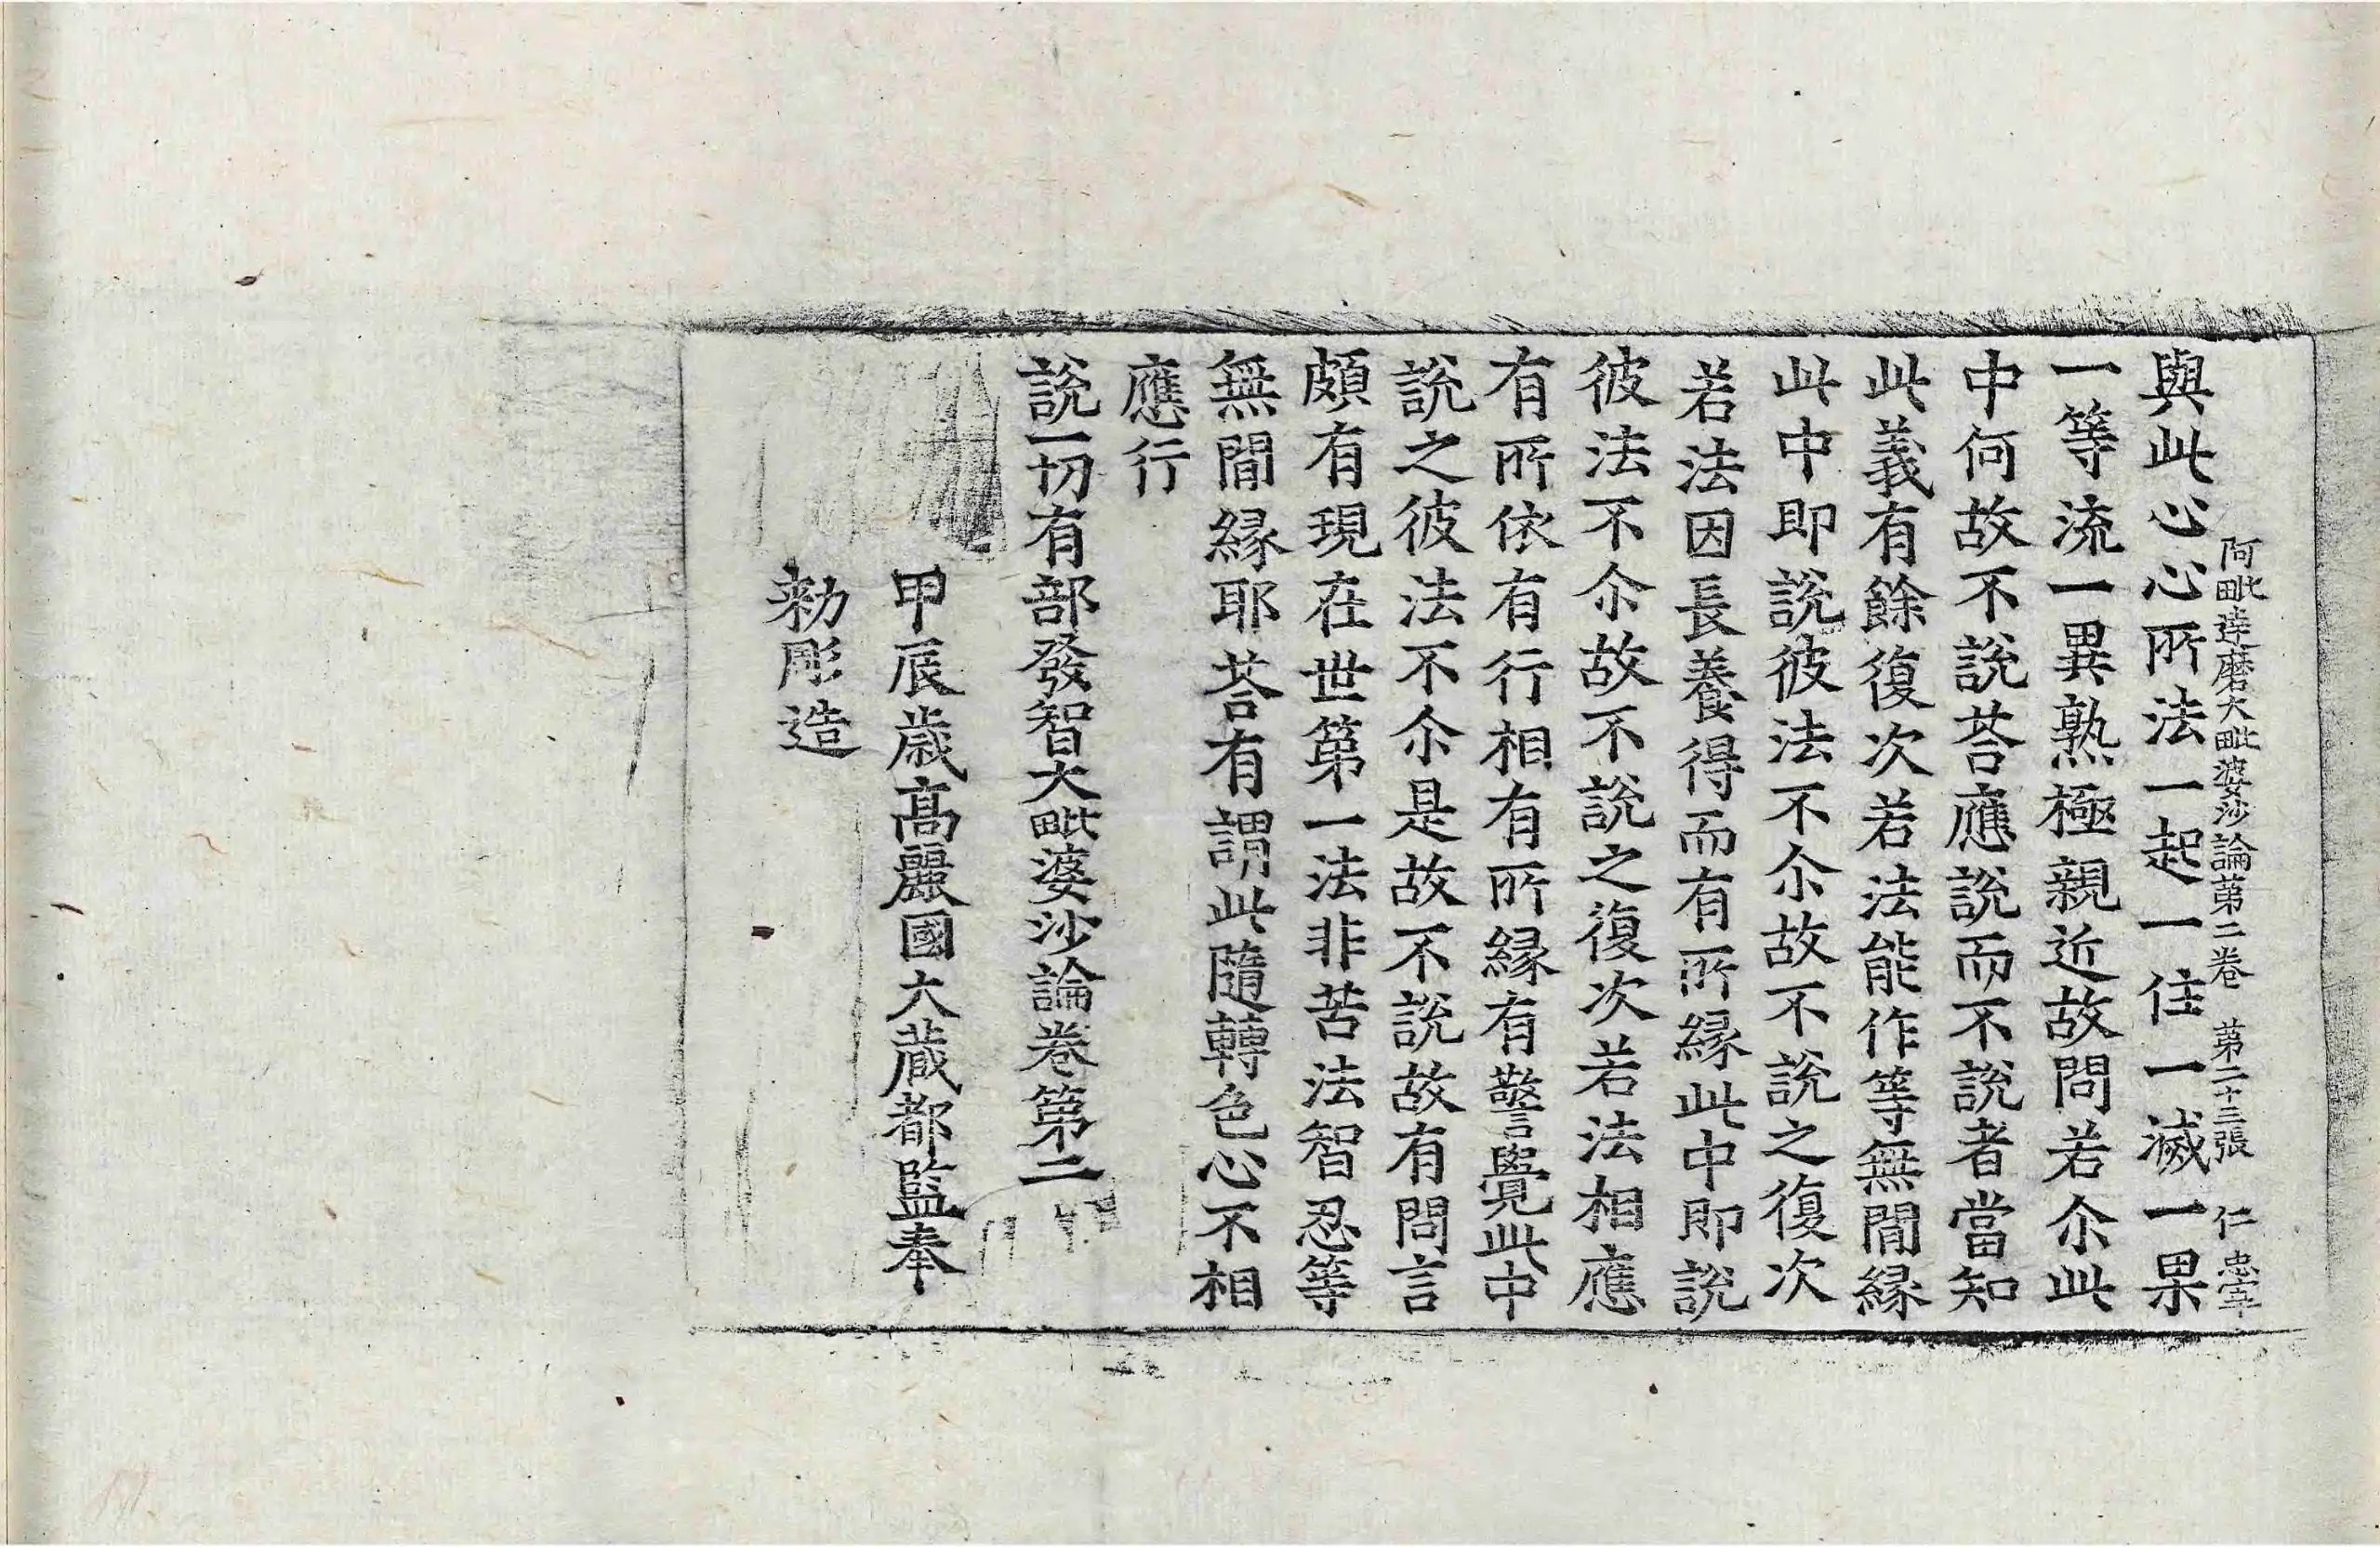 阿毗達磨大毗婆沙論第二卷 第二十三張 仁 忠宰
與此心心所法一起一住一滅一果
一等流一異熟極親近故問若尒此
中何故不說荅應說而不說者當知
此義有餘復次若法能作等無間緣
此中即說彼法不尒故不說之復次
若法因長養得而有所緣此中即說
彼法不尒故不說之復次若法相應
有所依有行相有所緣有警覺此中
說之彼法不尒是故不說故有問言
頗有現在世第一法非苦法智忍等
無間緣耶荅有謂此隨轉色心不相
應行
說一切有部發智大毗婆沙論卷第二
甲辰歲高麗國大藏都監奉
勑彫造